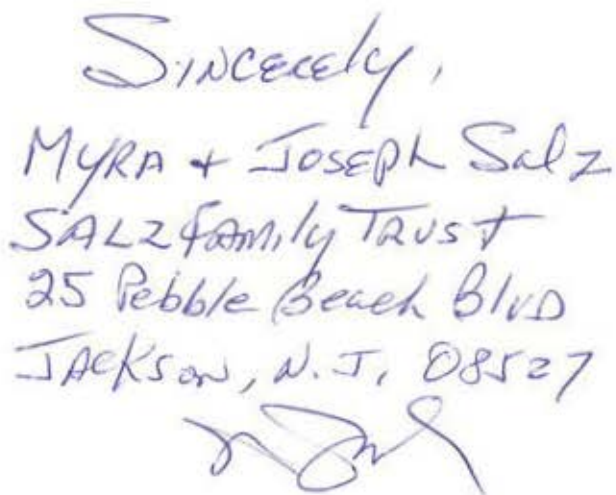 Sincerely,
Myra + Joseph Salz
Salz Family Trust
25 Pebble Beach Blvd
Jackson, N.J. 08527